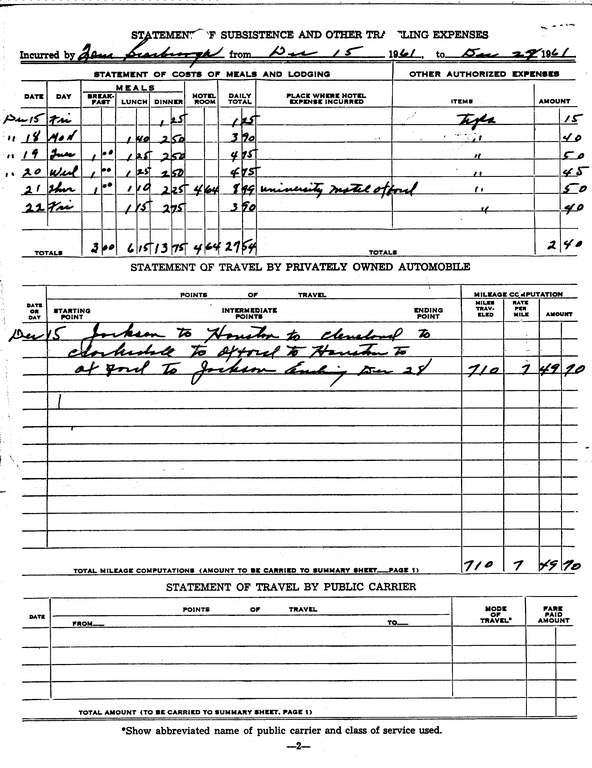 STATEMENT OF SUBSISTENCE AND OTHER TRAVELING EXPENSES
Incurred by Tom Scarbrough from Dec 15 1961, to Dec 28 1961
STATEMENT OF COSTS OF MEALS AND LODGING OTHER AUTHORIZED EXPENSES
DATE DAY MEALS HOTEL ROOM DAILY TOTAL PLACE WHERE HOTEL EXPENSE INCURRED ITEMS AMOUNT
BREAK-FAST LUNCH DINNER
Dec 15 Fri 1 25 1 25 Tips 15
" 18 Mon 1 40 2 50 3 90 " 40
" 19 Tues 1 00 1 25 2 50 4 75 " 50
" 20 Wed 1 00 1 25 2 50 4 75 " 45
21 Thur 1 00 1 10 2 25 4 64 8 99 university motel oxford " 50
22 Fri 1 15 2 75 3 90 " 40
TOTALS 3 00 6 15 13 75 4 64 27 54 TOTALS 2 40
STATEMENT OF TRAVEL BY PRIVATELY OWNED AUTOMOBILE
DATE OR DAY POINTS OF TRAVEL MILEAGE COMPUTATION
STARTING POINT INTERMEDIATE POINTS ENDING POINT MILES TRAV-ELED RATE PER MILE AMOUNT
Dec 15 Jackson to Houston to Cleveland to
Clarksdale to Oxford to Houston to
Oxford to Jackson Ending Dec 28 710 7 49 70
TOTAL MILEAGE COMPUTATIONS (AMOUNT TO BE CARRIED TO SUMMARY SHEET PAGE 1) 710 7 49 70
STATEMENT OF TRAVEL BY PUBLIC CARRIER
DATE POINTS OF TRAVEL MODE OF TRAVEL* FARE PAID AMOUNT
FROM TO
TOTAL AMOUNT (TO BE CARRIED TO SUMMARY SHEET, PAGE 1)
*Show abbreviated name of public carrier and class of service used.
—2—